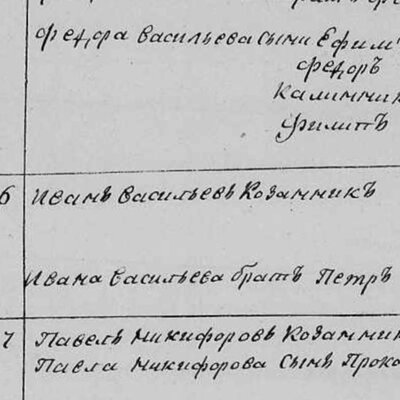 Федора Васильева сыни Ефим
Федоръ
Калинник
Филипъ
6 Иванъ Васильевъ Козанникъ
Ивана Васильева братъ Петръ
7 Павелъ Никифоровъ Козанни
Павла Никифорова сынъ Проко